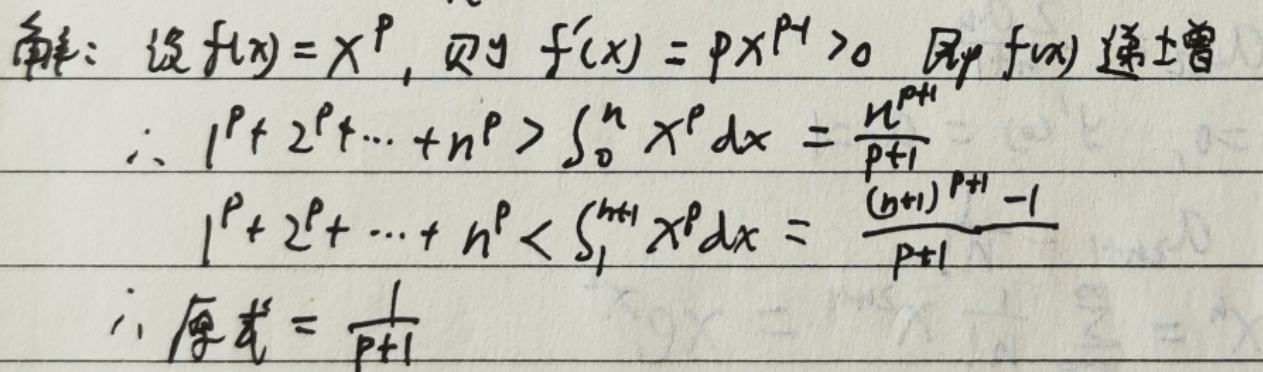 解: 设 f(x) = x^p, 则 f'(x) = px^{p-1} > 0 即 f(x) 递增
∴ 1^p + 2^p + ... + n^p > ∫_0^n x^p dx = \frac{n^{p+1}}{p+1}
1^p + 2^p + ... + n^p < ∫_1^{n+1} x^p dx = \frac{(n+1)^{p+1} - 1}{p+1}
∴ 原式 = \frac{1}{p+1}